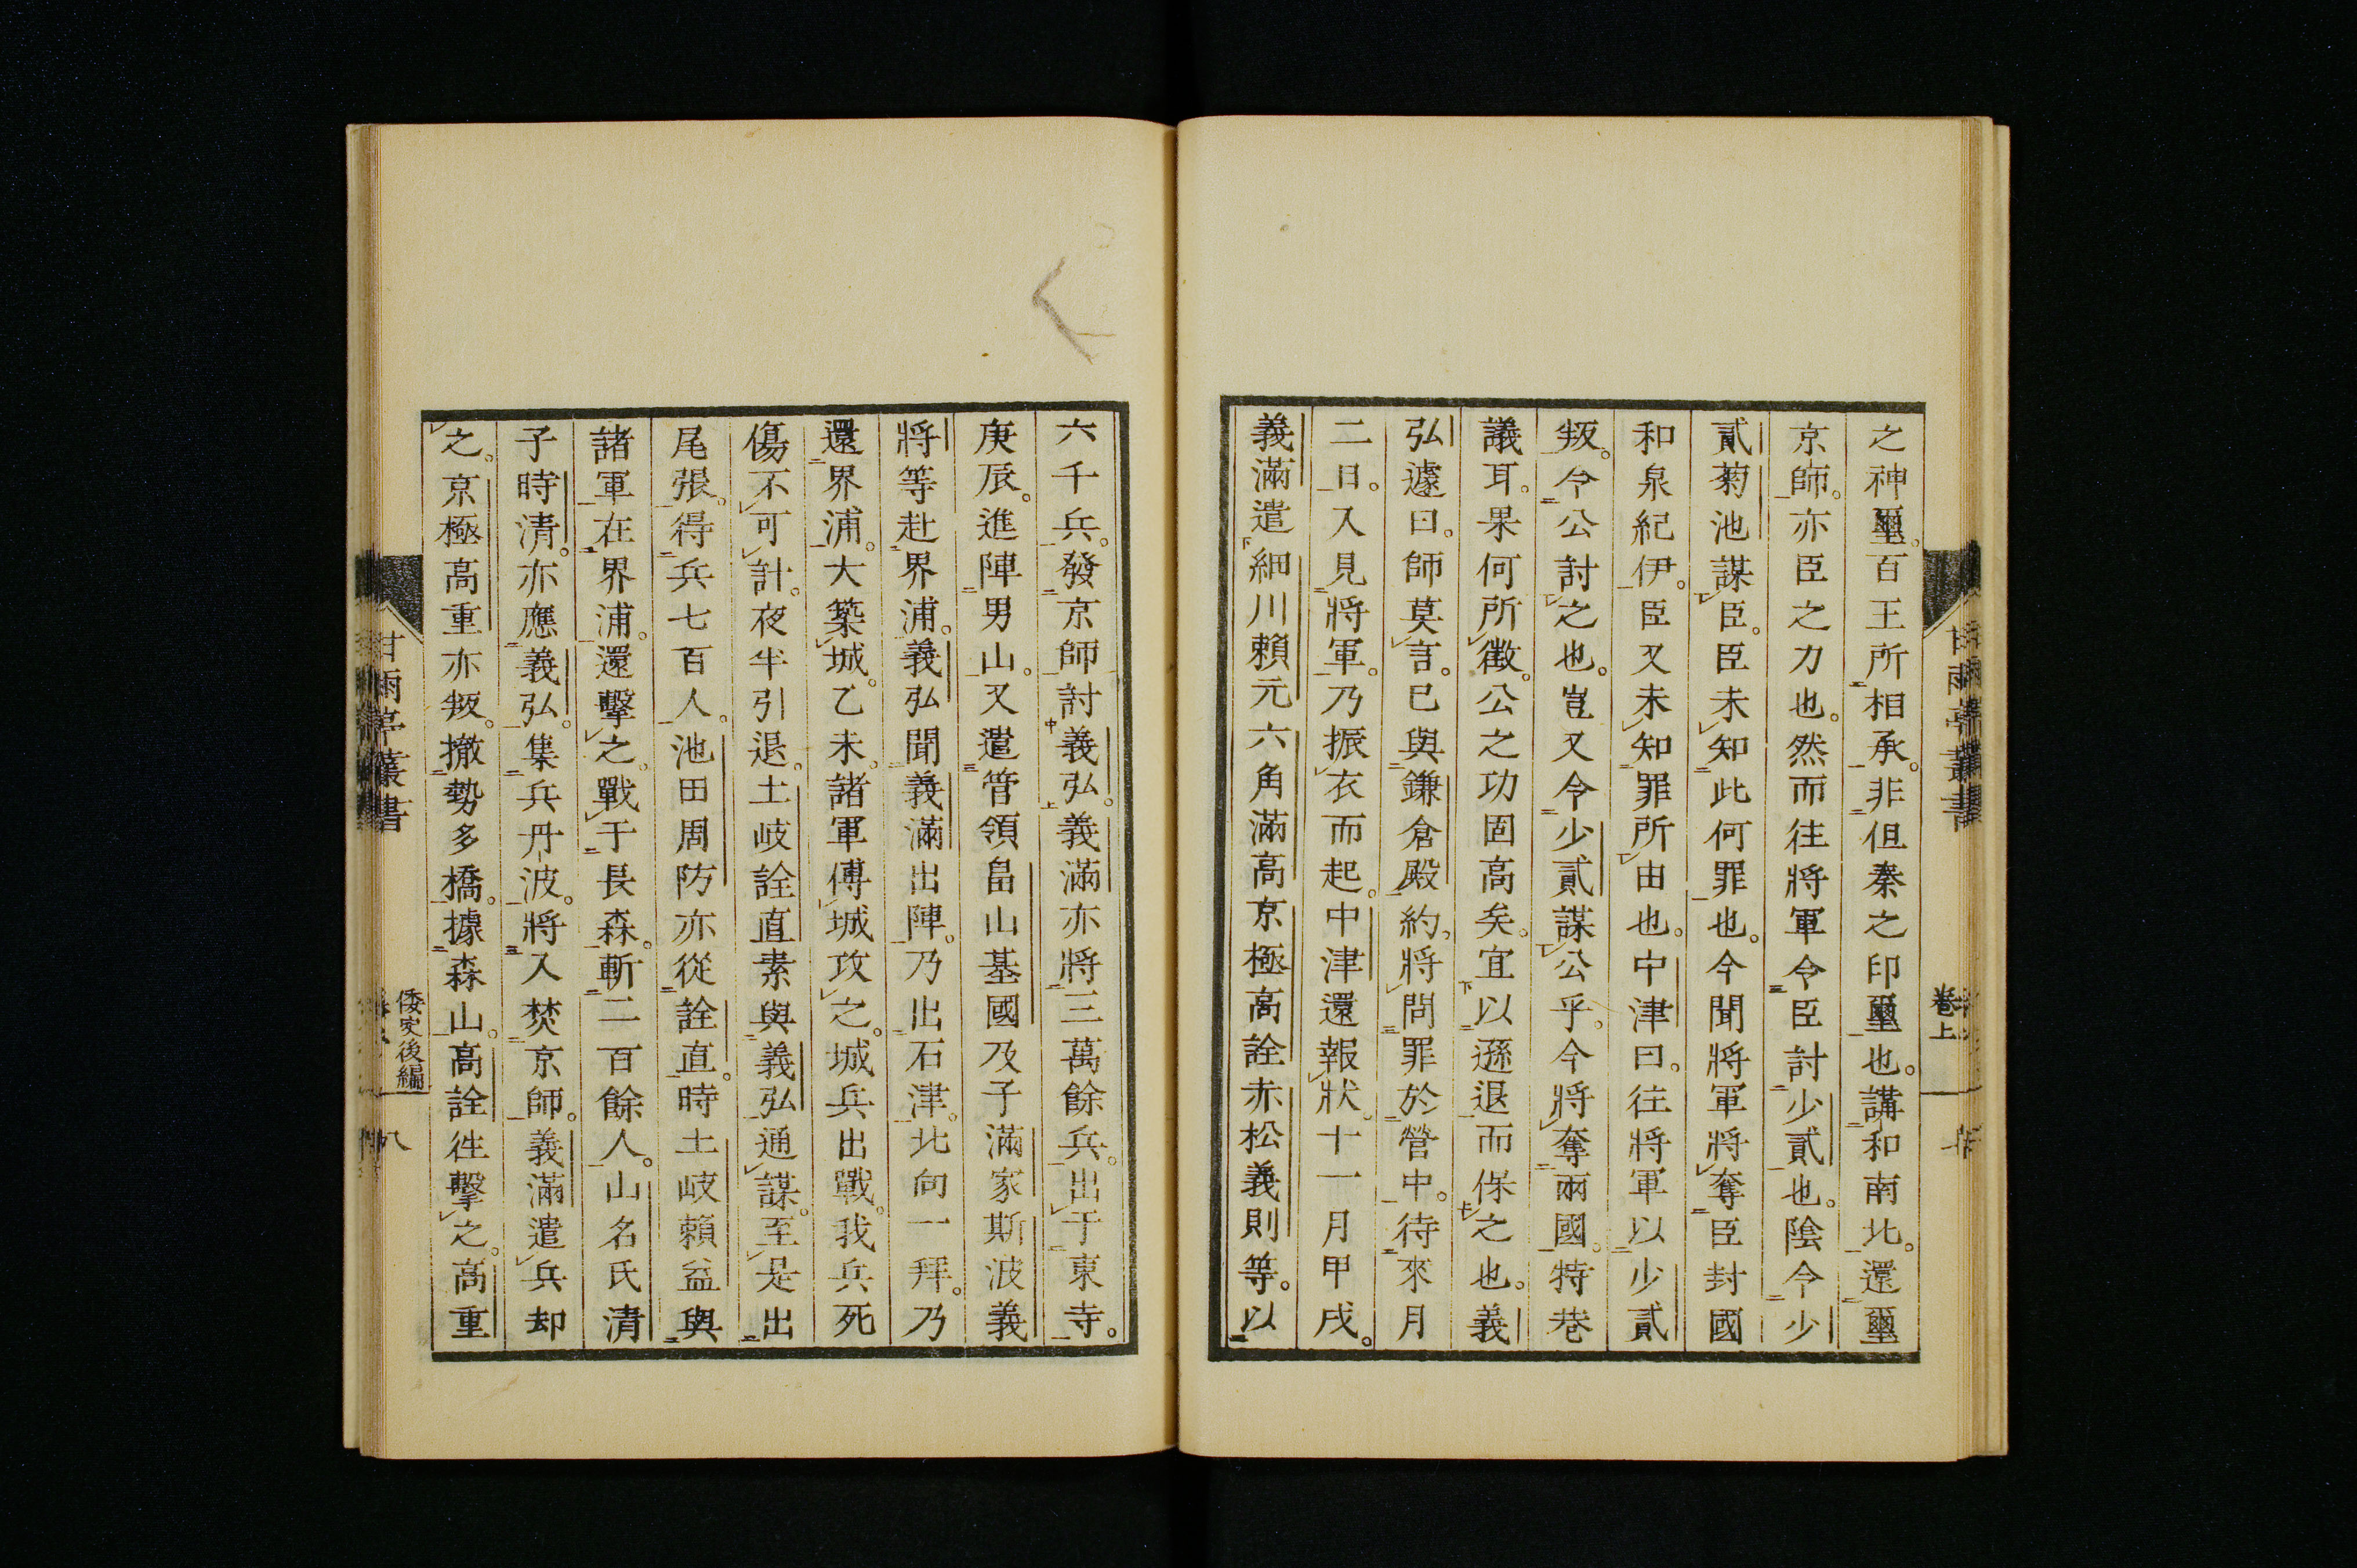 之神璽。百王所相承。非但秦之印璽也。講和南北。還璽
京師。亦臣之力也。然而往將軍令臣討少貳也。陰令少
貳菊池謀臣。臣未知此何罪也。今聞將軍將奪臣封國
和泉紀伊。臣又未知罪所由也。中津曰。往將軍以少貳
叛。令公討之也。豈又令少貳謀公乎。今將奪兩國。特巷
議耳。果何所徵。公之功固高矣。宜以遜退而保之也。義
弘遽曰。師莫言。已與鎌倉殿約。將問罪於營中。待來月
二日。入見將軍。乃振衣而起。中津還報狀。十一月甲戌。
義滿遣細川賴元六角滿高京極高詮赤松義則等。以
卷上
六千兵。發京師討義弘。義滿亦將三萬餘兵。出于東寺。
庚辰。進陣男山。又遣管領畠山基國及子滿家斯波義
將等赴界浦。義弘聞義滿出陣。乃出石津。北向一拜。乃
還界浦。大築城。乙未。諸軍傅城攻之。城兵出戰。我兵死
傷不可計。夜半引退。土岐詮直素與義弘通謀。至是出
尾張。得兵七百人。池田周防亦從詮直。時土岐賴益與
諸軍在界浦。還擊之。戰于長森。斬二百餘人。山名氏清
子時清。亦應義弘。集兵丹波。將入焚京師。義滿遣兵却
之。京極高重亦叛。撤勢多橋。據森山。高詮往擊之。高重
甘雨亭叢書
倭史後編
八